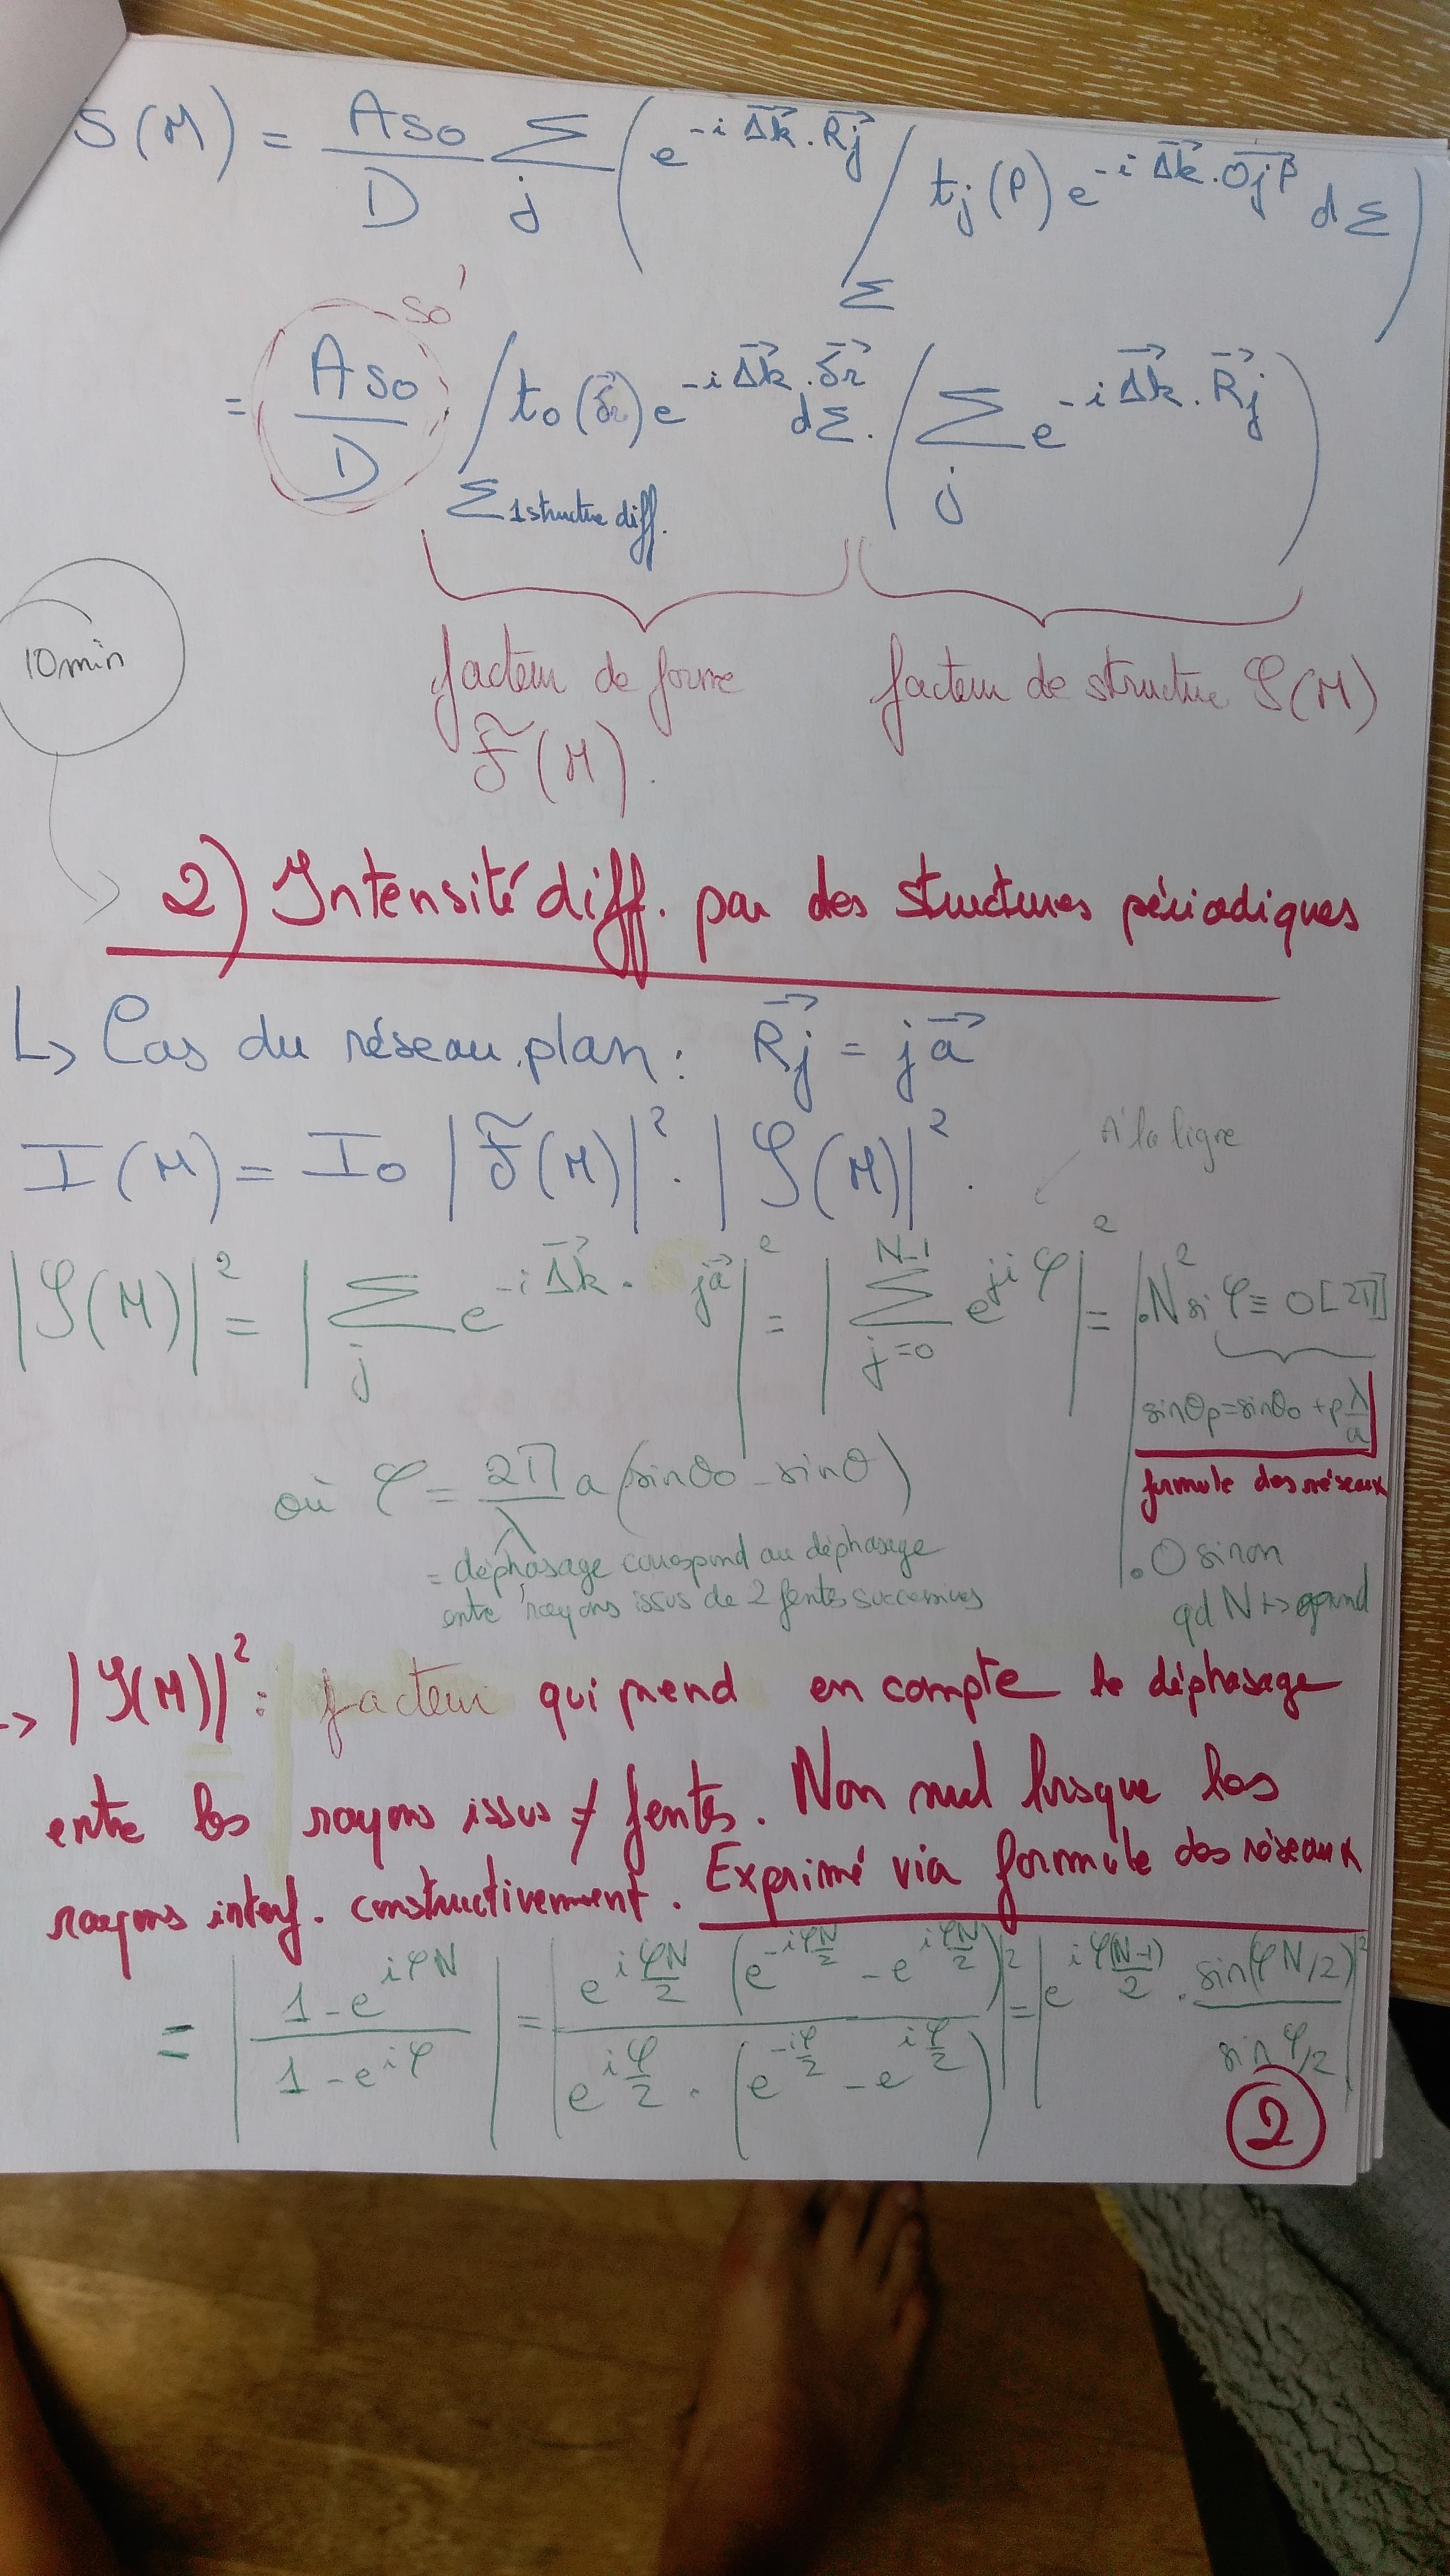 S(M) = As₀/D Σ_j ( e^{-i Δk⃗.R⃗j} ∫_Σ tj(P) e^{-i Δk⃗.OjP⃗} dΣ )
so'
= As₀/D ∫_{Σ 1 structure diff.} t₀(δr⃗) e^{-i Δk⃗.δr⃗} dΣ . ( Σ_j e^{-i Δk⃗.R⃗j} )
10min
facteur de forme facteur de structure 𝒮(M)
F̃(M).
2) Intensité diff. par des structures périodiques
↳ Cas du réseau plan : R⃗j = j a⃗
A la ligne
I(M) = I₀ |F̃(M)|² . |𝒮(M)|² .
|𝒮(M)|² = | Σ_j e^{-i Δk⃗. ja⃗} |² = | Σ_{j=0}^{N-1} e^{jiφ} |² = | . N² si φ ≡ 0 [2π]
sinθp = sinθ₀ + p λ/a
formule des réseaux
. 0 sinon
qd N ↦ grand
où φ = 2π/λ a (sinθ₀ - sinθ)
= déphasage correspond au déphasage
entre rayons issus de 2 fentes successives
→ |𝒮(M)|² : facteur qui prend en compte le déphasage
entre les rayons issus ≠ fentes. Non nul lorsque les
rayons interf. constructivement. Exprimé via formule des réseaux
= | (1 - e^{iφN}) / (1 - e^{iφ}) | = | e^{iφN/2} (e^{-iφN/2} - e^{iφN/2}) / e^{iφ/2} . (e^{-iφ/2} - e^{iφ/2}) |² = | e^{iφ(N-1)/2} . sin(φN/2) / sin φ/2 |²
2